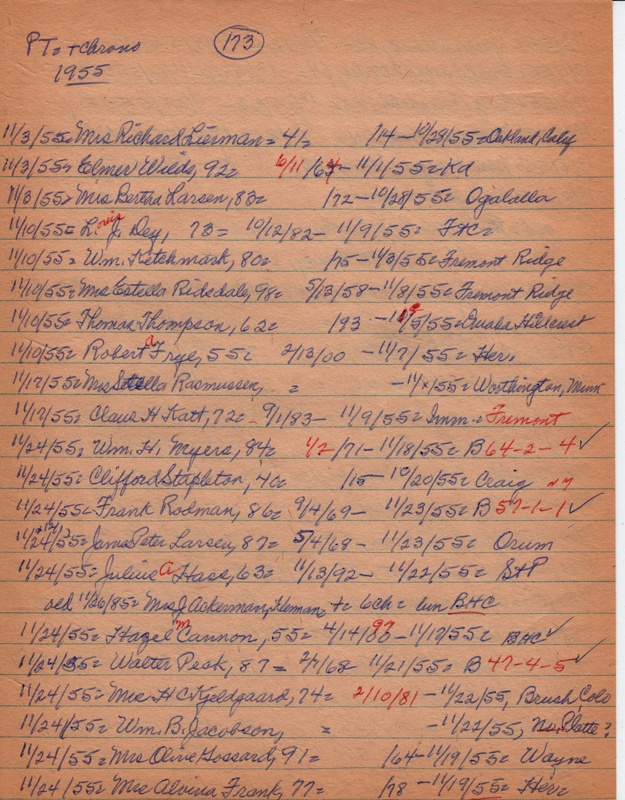 PT= + chrono
173
1955
11/3/55= Mrs Richard Lierman = 41= /14 - 10/29/55= Oakland, Calif
11/3/55= Elmer Wilds, 92= 6/11/63 - 11/1/55= Kd
11/3/55= Mrs Bertha Larsen, 83= /72 - 10/28/55= Ogalalla
11/10/55= Louis J. Dey, 73= 10/12/82 - 11/9/55= F+C=
11/10/55= Wm. Ketchmark, 80= /75 - 11/3/55= Fremont Ridge
11/10/55= Mrs Estella Ridsdale, 98= 5/13/58 - 11/8/55= Fremont Ridge
11/10/55= Thomas Thompson, 62= /93 - 11/5/55= Omaha Hillcrest
11/10/55= Robert A Frye, 55= 2/13/00 - 11/7/55= Her=
11/17/55= Mrs Stella Rasmussen, = - 11/x/55= Worthington, Minn
11/17/55= Claus H Katt, 72= 9/1/83 - 11/9/55= Imm.= Fremont
11/24/55= Wm. H. Myers, 84= 1/2/71 - 11/18/55= B 64-2-4 ✓
11/24/55= Clifford Stapleton, 40= /15 - 10/20/55= Craig
11/24/55= Frank Rodman, 86= 9/4/69 - 11/23/55= B 57-1-1 ✓
11/24/55= James Peter Larsen, 87= 5/4/68 - 11/23/55= Orum
11/24/55= Julius A Hass, 63= 11/13/92 - 11/22/55= S+P
Mrs J Ackerman, Herman, += 6 ch= B+C
11/24/55= Hazel M Cannon, 55= 4/14/ - 11/17/55= BHC ✓
11/24/55= Walter Peak, 87= 2/7/68 - 11/21/55= B 47-4-5 ✓
11/24/55= Mrs H C Kjeldgaard, 74= 2/10/81 - 11/22/55, Brush, Colo
11/24/55= Wm. B. Jacobson, = - 11/22/55, No. Platte?
11/24/55= Mrs Olive Gossard, 91= /64 - 11/19/55= Wayne
11/24/55= Mrs Alvina Frank, 77= /78 - 11/19/55= Her=